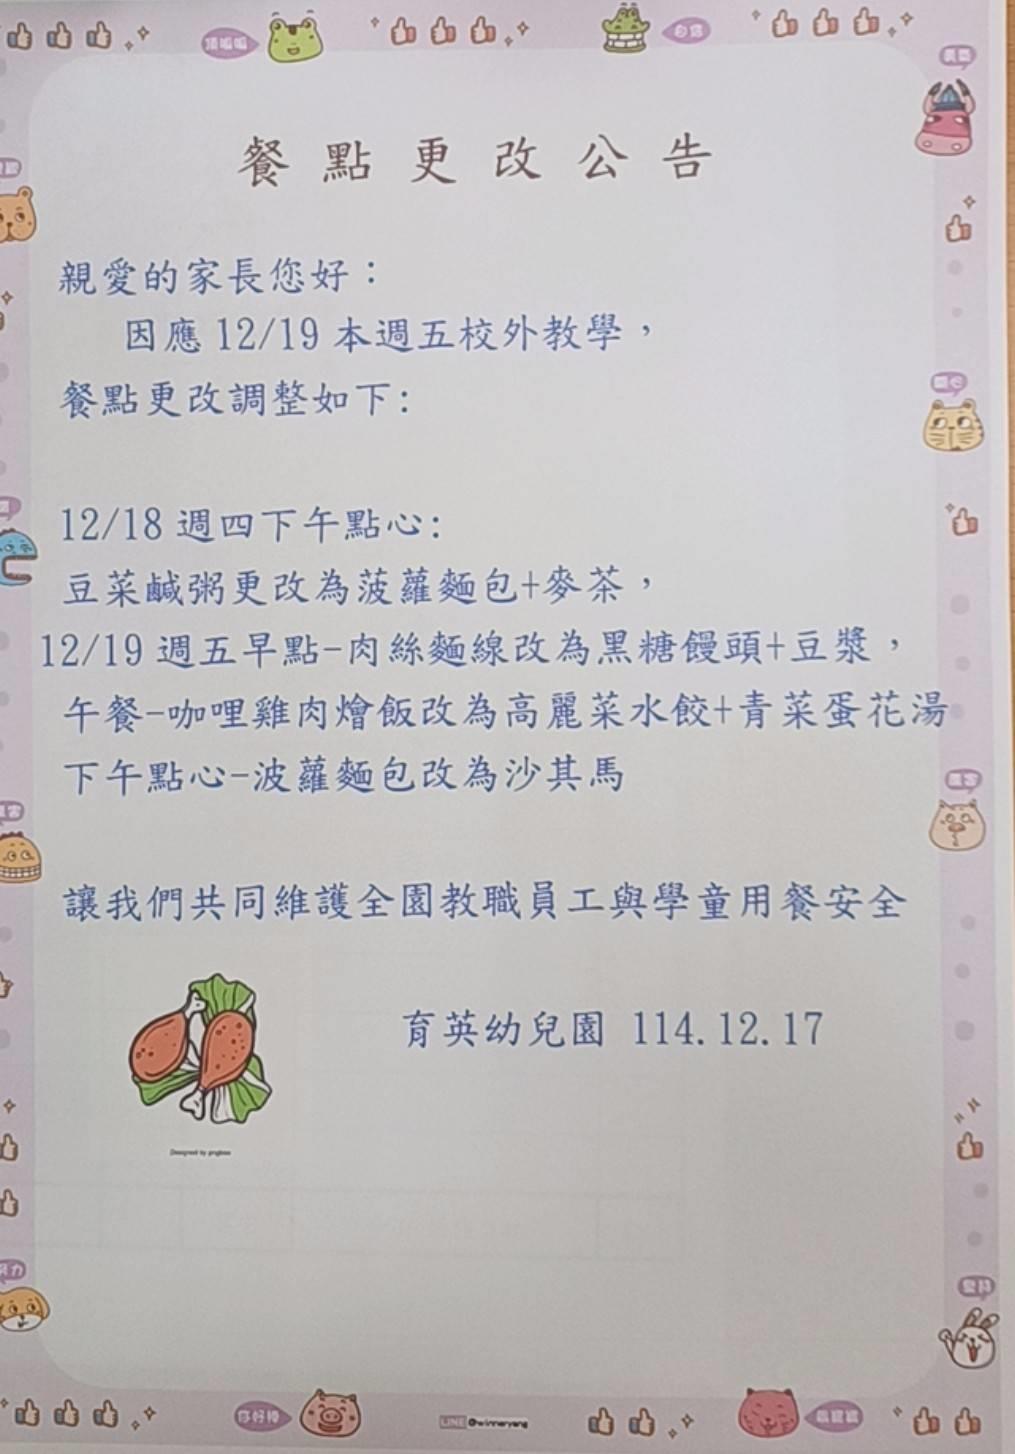 餐點更改公告
親愛的家長您好：
因應 12/19 本週五校外教學，
餐點更改調整如下:
12/18 週四下午點心:
豆菜鹹粥更改為菠蘿麵包+麥茶，
12/19 週五早點-肉絲麵線改為黑糖饅頭+豆漿，
午餐-咖哩雞肉燴飯改為高麗菜水餃+青菜蛋花湯
下午點心-波蘿麵包改為沙其馬
讓我們共同維護全園教職員工與學童用餐安全
育英幼兒園 114.12.17
Designed by pngtree
你好棒
LINE @winneryang